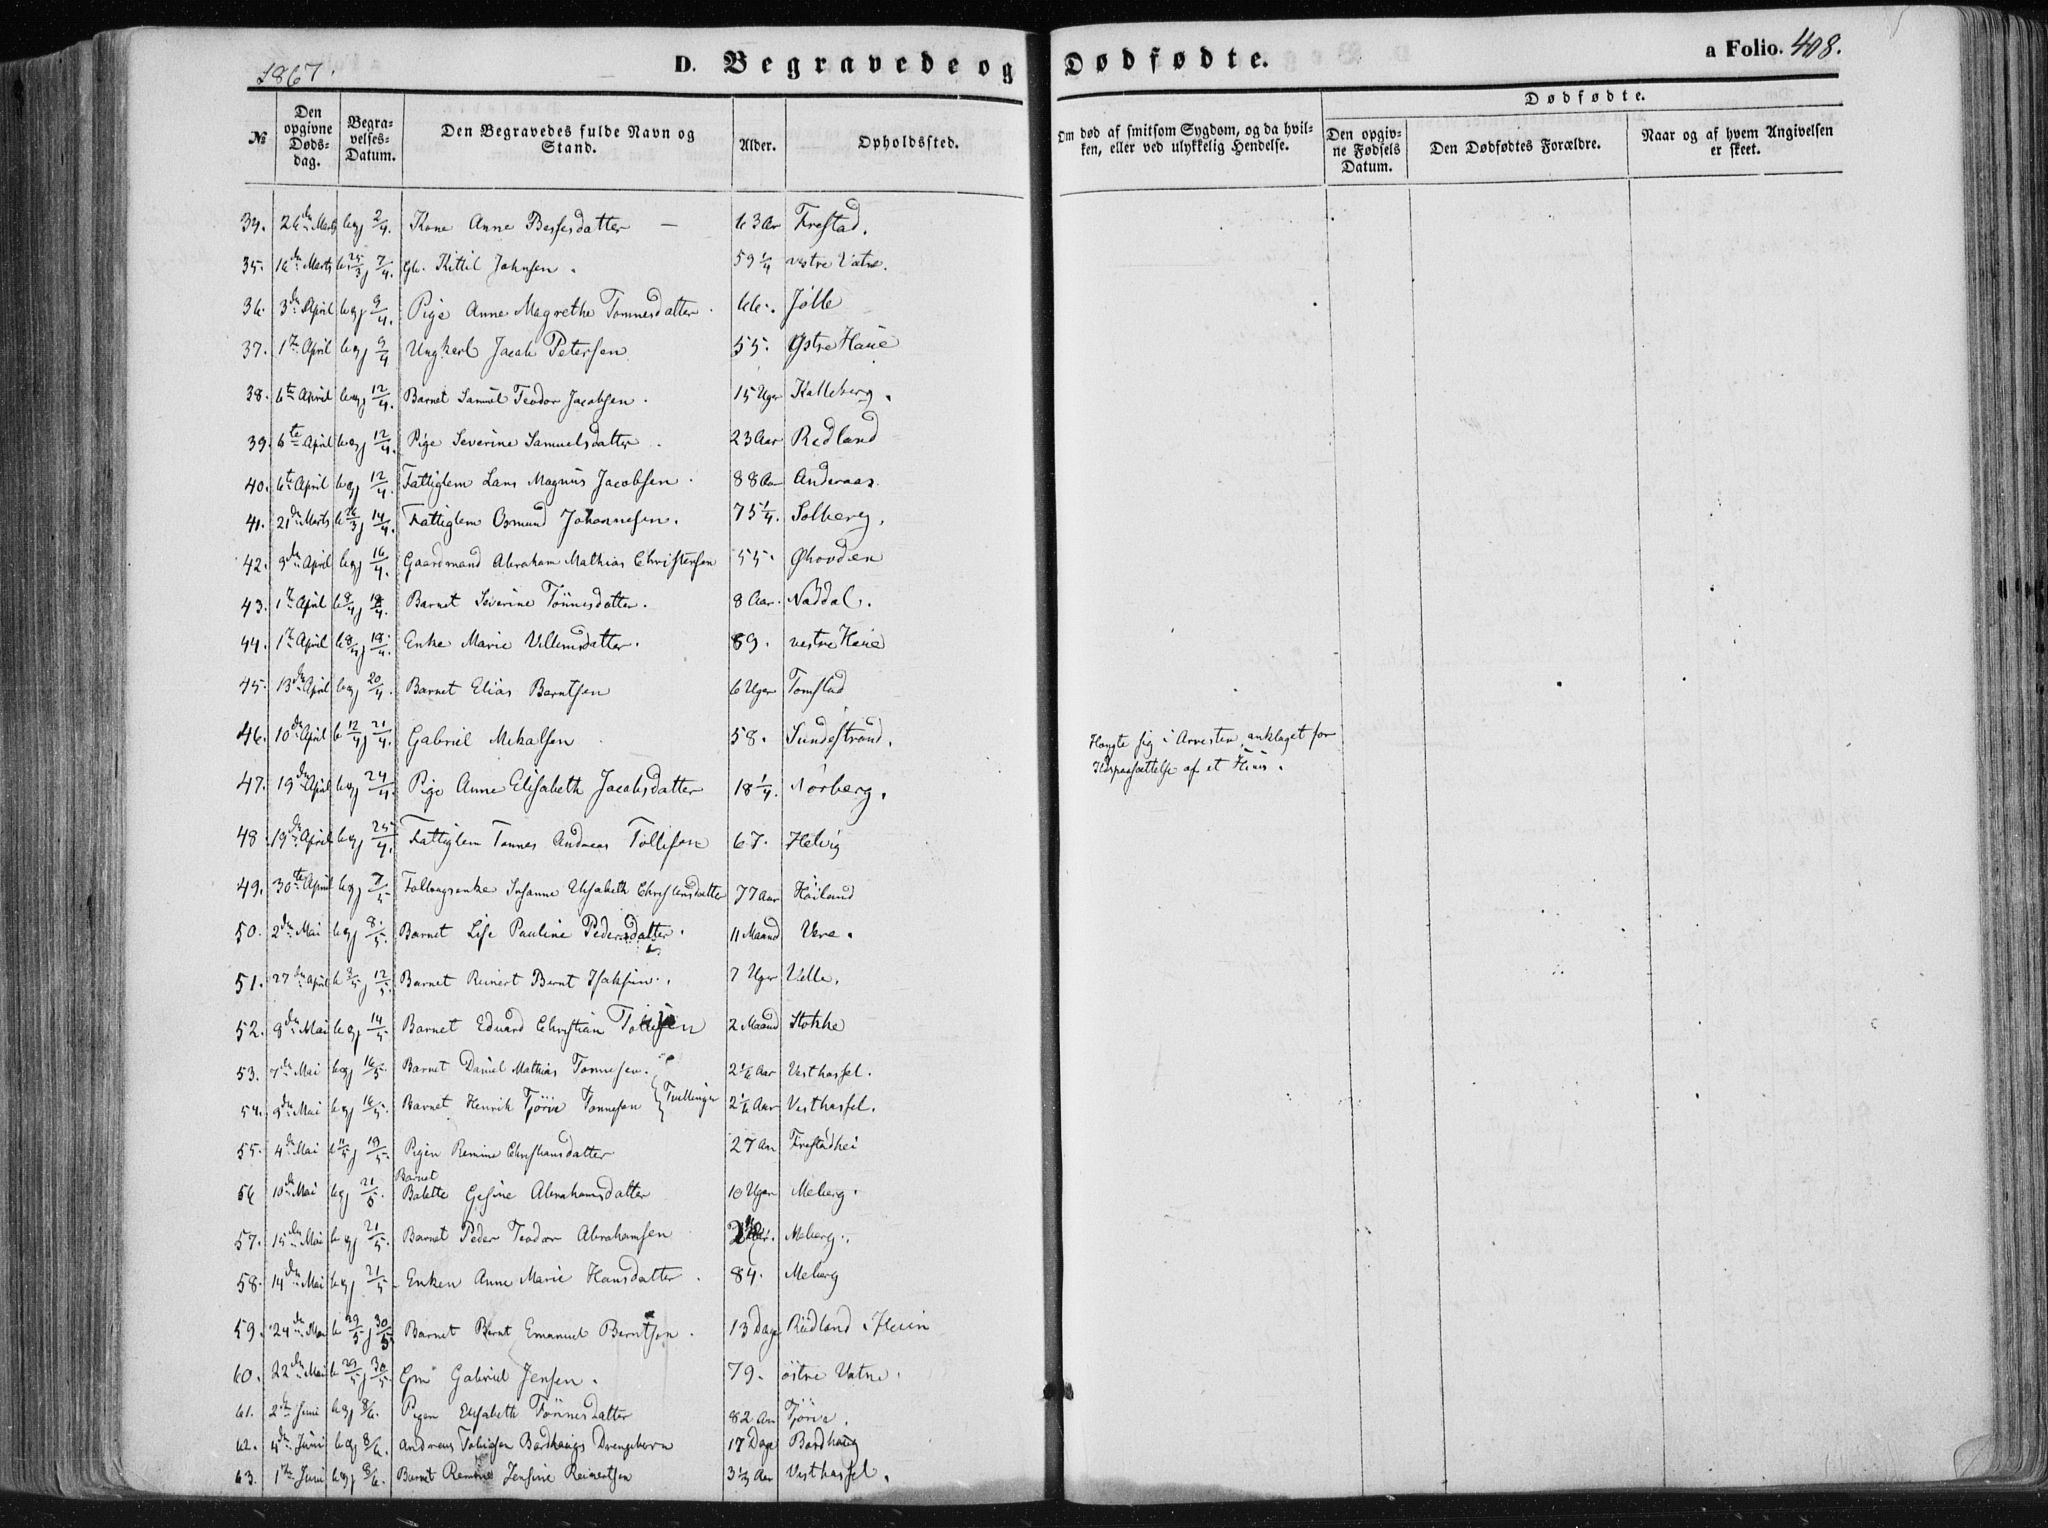 1867.
D. Begravede og Dødfødte.
a Folio. 408.
Dødfødte.
№ Den opgivne Døds-dag. Begra-velses-Datum. Den Begravedes fulde Navn og Stand. Alder. Opholdssted. Om død af smitsom Sygdom, og da hvil-ken, eller ved ulykkelig Hendelse. Den opgiv-ne Fødsels Datum. Den Dødfødtes Forældre. Naar og af hvem Angivelsen er skeet.
34. 26de Marts beg 2/4. Kone Anne Bessesdatter — 63 Aar Frestad.
35. 16de Marts b 25/3 j 7/4. Kittil Johnsen. 59 1/4 vestre Vatne.
36. 3de April beg 9/4. Pige Anne Magrethe Tomnesdatter. 66. Jølle
37. 1te April beg 9/4 Ungkarl Jacob Petersen 55. Østre Haue
38. 6te April beg 12/4. Barnet Samuel Teodor Jacobsen. 15 Uger Kalleberg.
39. 6te April beg 12/4. Pige Severine Samuelsdatter. 23 Aar Rødland
40. 6te April beg 12/4. Fattiglem Lars Magnus Jacobsen. 88 Aar Anderaas.
41. 21de Marts b 26/3 j 14/4. Fattiglem Osmund Johannesen. 75 1/4. Solberg.
42. 9de April beg 16/4. Gaardmand Abraham Mathias Christensen 55. Øhovden
43. 1te April b 8/4 j 18/4. Barnet Severine Tönnesdatter. 8 Aar. Nøddal.
44. 1te April b 8/4 j 18/4. Enke Marie Villumsdatter. 89. vestre Haue
45. 13de April beg 20/4. Barnet Elias Berntsen 6 Uger Tomstad
46. 10de April b 12/4 j 21/4. Gabriel Mikalsen 58. Sundestrand. Hængte sig i Arresten, anklaget for
Ildspaasættelse af et Huus.
47. 19de April beg 24/4. Pige Anne Elisabeth Jacobsdatter 18 1/4. Nørberg.
48 19de April beg 25/4. Fattiglem Tønnes Andreas Tollisen 67. Helvig
49. 30te April beg 7/5 Susanne Elisabeth Christensdatter 77 Aar Høiland
50. 2den Mai beg 8/5. Barnet Lise Pauline Pedersdatter. 11 Maaned Vere.
51. 27de April b 8/5 j 12/5. Barnet Reinert Bernt Isaksen. 7 Uger Velle.
52. 8de Mai beg 14/5. Barnet Eduard Christian Tollisen 2 Maaned Stokke
53. 7de Mai beg 16/5. Barnet Daniel Mathias Tønnesen. 2 1/6 Aar Vesthassel.
54. 9de Mai beg 16/5. Barnet Henrik Tjørve Tønnesen } Tvillinger 2 1/6 Aar Vesthassel.
55. 4de Mai b 11/5 j 19/5. Pigen Remine Christiansdatter 27 Aar Frestadhei
56 10de Mai beg 21/5. Barnet Bolette Gesine Abrahamsdatter 10 Uger Meberg.
57. 15de Mai beg 21/5. Barnet Peder Teodor Abrahamsen Meberg.
58. 14de Mai beg 21/5. Enken Anne Marie Hansdatter. 84. Meberg
59. 24de Mai b 29/5 j 30/5 Barnet Bernt Emanuel Berntsen. 13 Dage Rødland i Heien
60. 22de Mai b 29/5 j 30/5 Em Gabriel Jensen. 79. östre Vatne.
61. 2de Juni beg 8/6. Pigen Elisabeth Tönnesdatter 82 Aar Tjørve.
62. 4de Juni beg 8/6. Andreas Tobiasen Bordhaugs Drengebarn 17 Dage Bordhaug
63. 1te Juni beg 8/6. Barnet Remine Jensine Reinertsen 3 1/3 Aar Vesthassel.